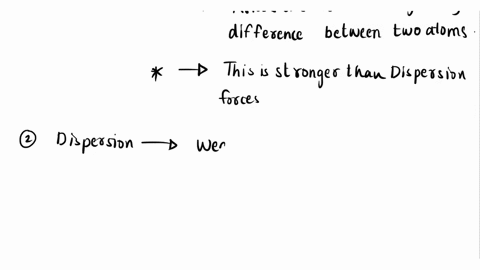 difference between two atoms.
* → This is stronger than Dispersion
forces
② Dispersion → Wer